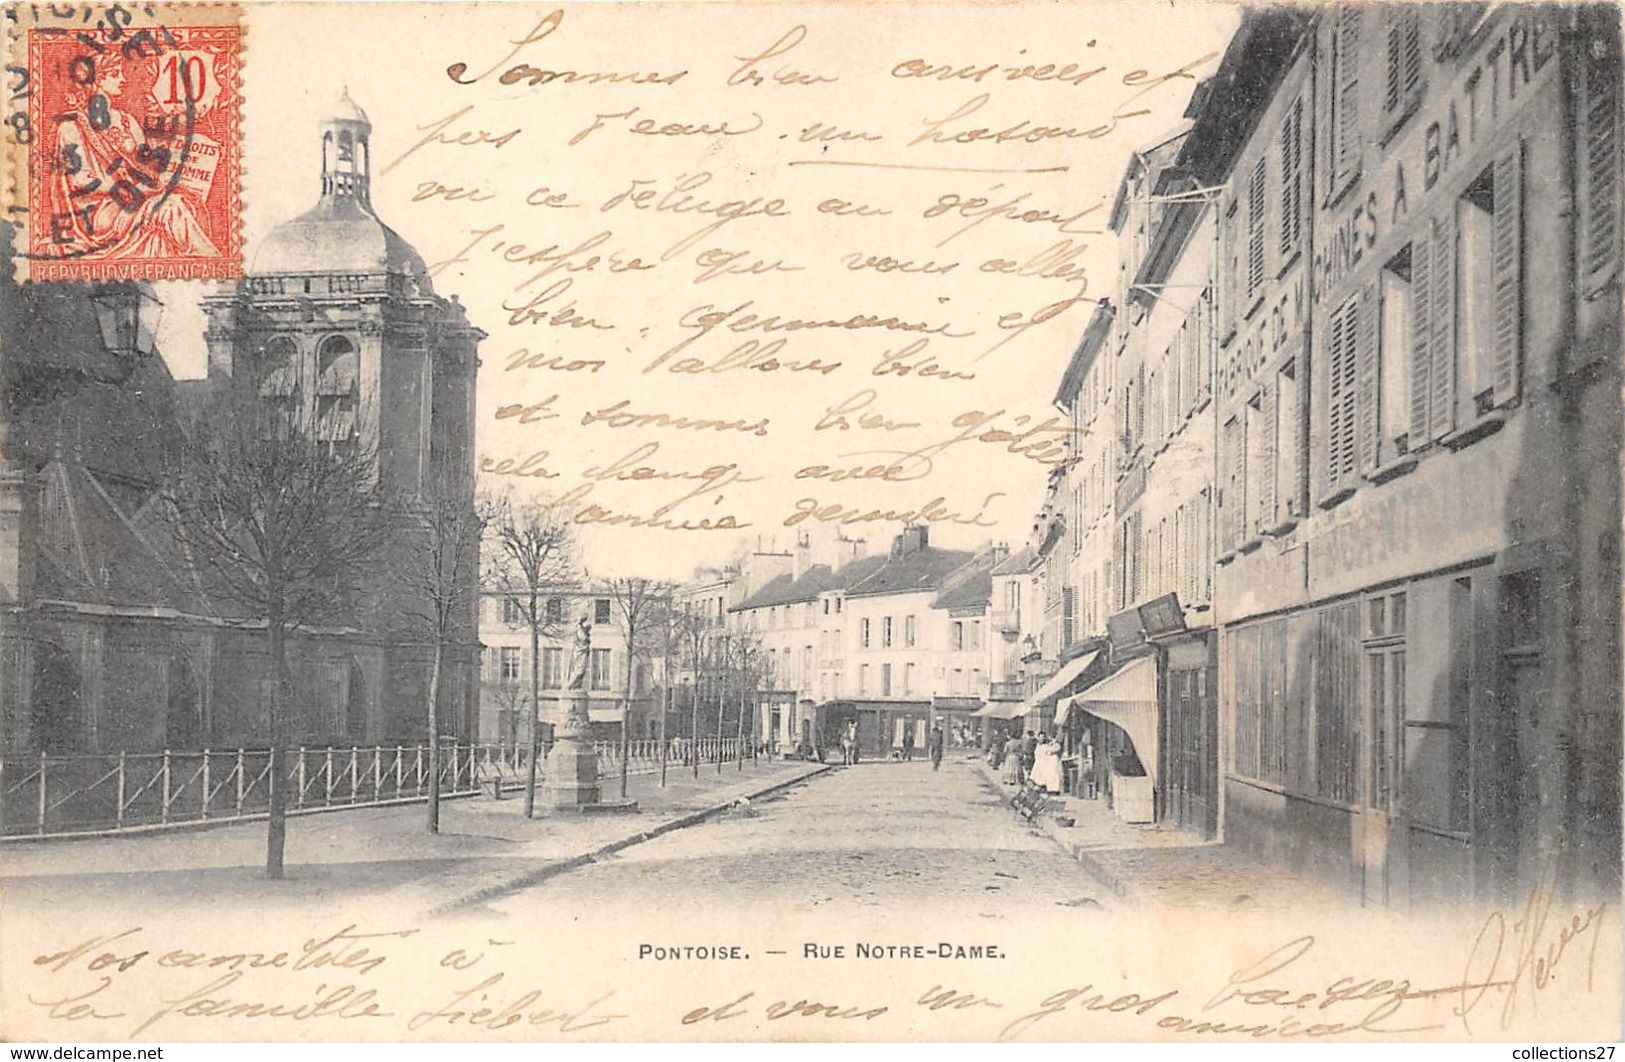 POSTES
10
DROITS
DE
L'HOMME
REPVBLIQVE FRANÇAISE
ET OISE
Sommes bien arrivées et
pas d'eau. un hasard
vu ce déluge au départ
J'espère que vous allez
bien. Germaine et
moi allons bien
et sommes bien gâtées
cela change avec
l'année dernière
FABRIQUE DE M
CHINES A BATTRE
PONTOISE. — RUE NOTRE-DAME.
Nos amitiés à
la famille Liebert et vous un gros baiser
amical
collections27